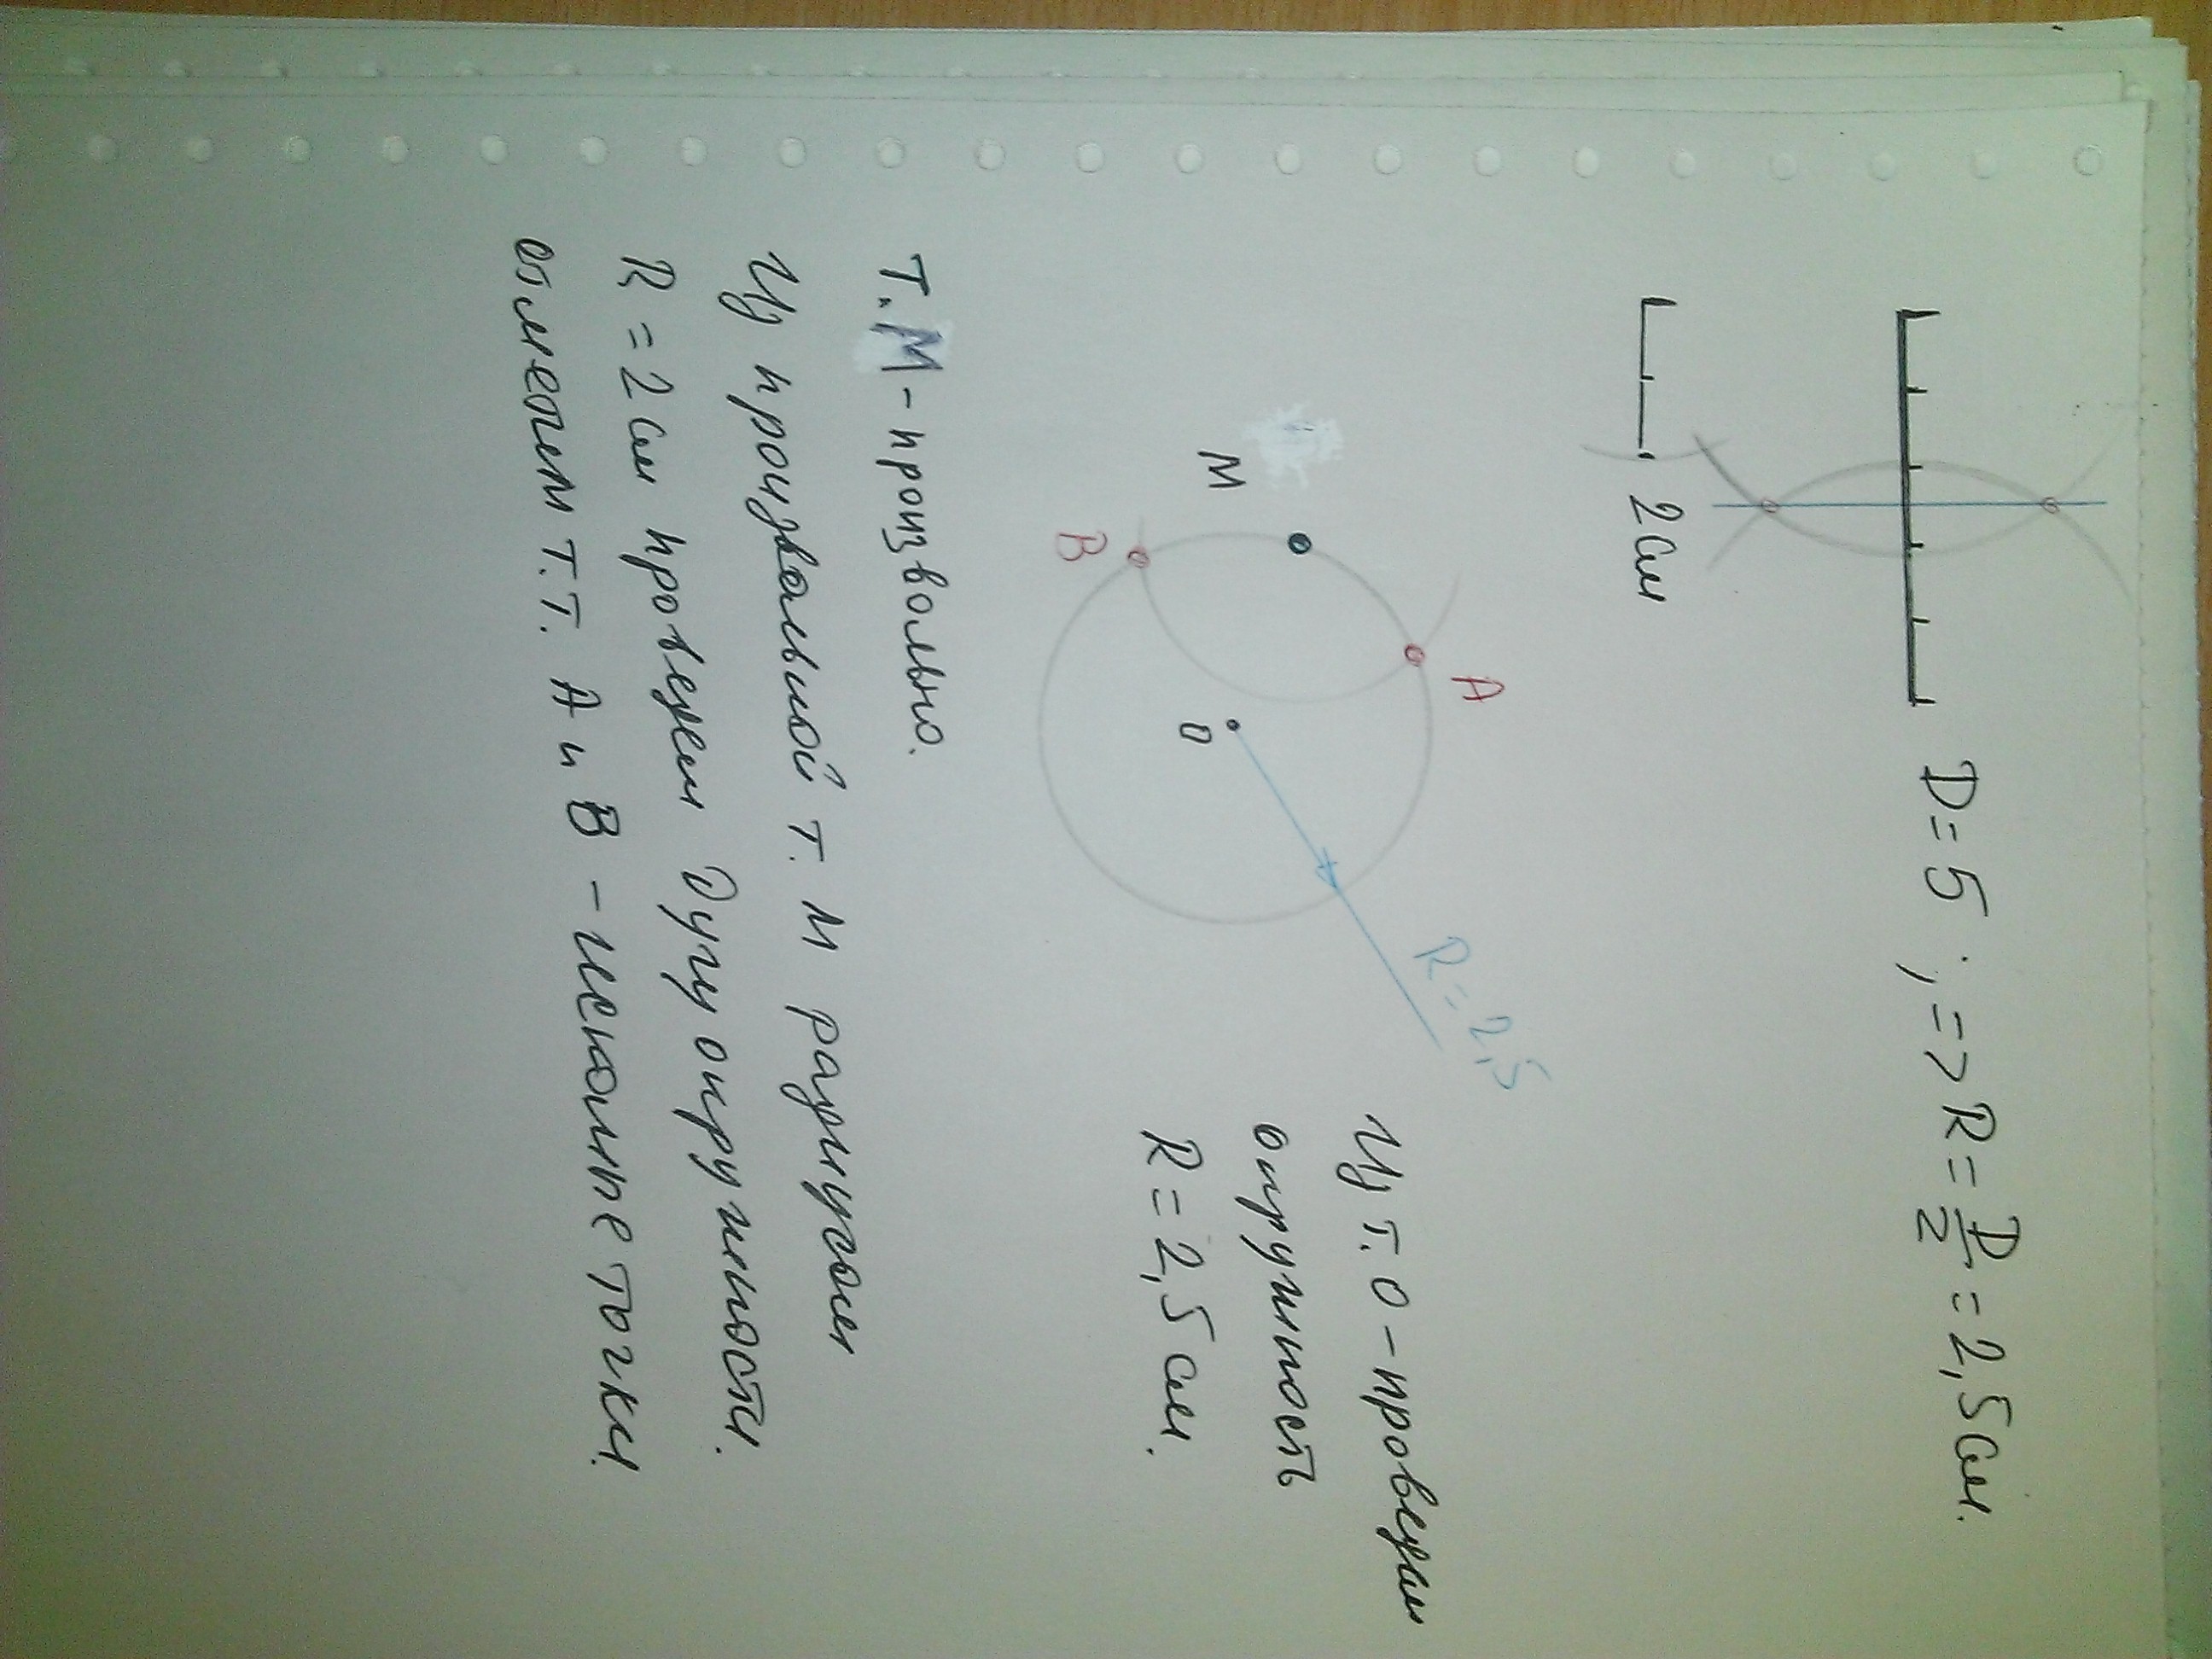 D=5 ; => R = D/2 = 2,5 см.
2 см
A
R=2,5
M
O
B
Из т. О - проведем
окружность
R = 2,5 см.
т. М - произвольно.
Из произвольной т. М радиусом
R = 2 см проведем дугу окружности.
отметим т.т. А и В - искомые точки.